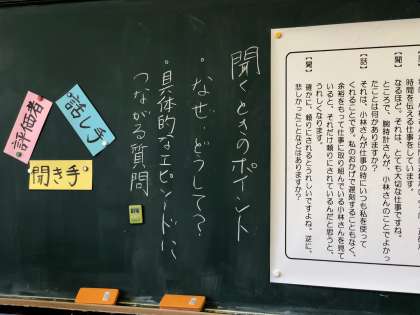 時間を伝える仕事をしています。
【聞】
なるほど。それは、とても大切な仕事ですね。
ところで、腕時計さんが、小林さんのことでよかっ
たことは何かありますか?
【話】
それは、小林さんが仕事の時にいつも私を使って
くれることです。私のおかげで遅刻することもなく、
余裕をもって仕事に取り組んでいる小林さんを見て
いると、それだけ頼りにされているんだと思うと、
うれしくなります。
【聞】
確かに、頼りにされるとうれしいですよね。逆に、
悲しかったことなどはありますか?
聞くときのポイント
・なぜ・どうして?
・具体的なエピソードに
つながる質問
話し手
評価者
聞き手